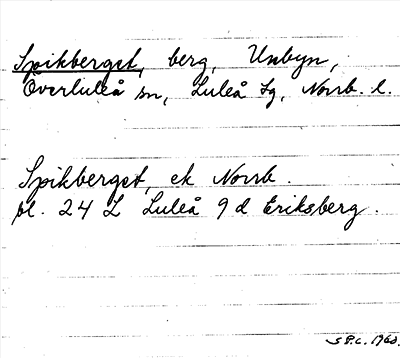 Spikberget, berg, Unbyn,
Överluleå sn, Luleå tg, Norrb. l.
Spikberget, ek Norrb.
bl. 24 L Luleå 9 d Eriksberg.
1960.